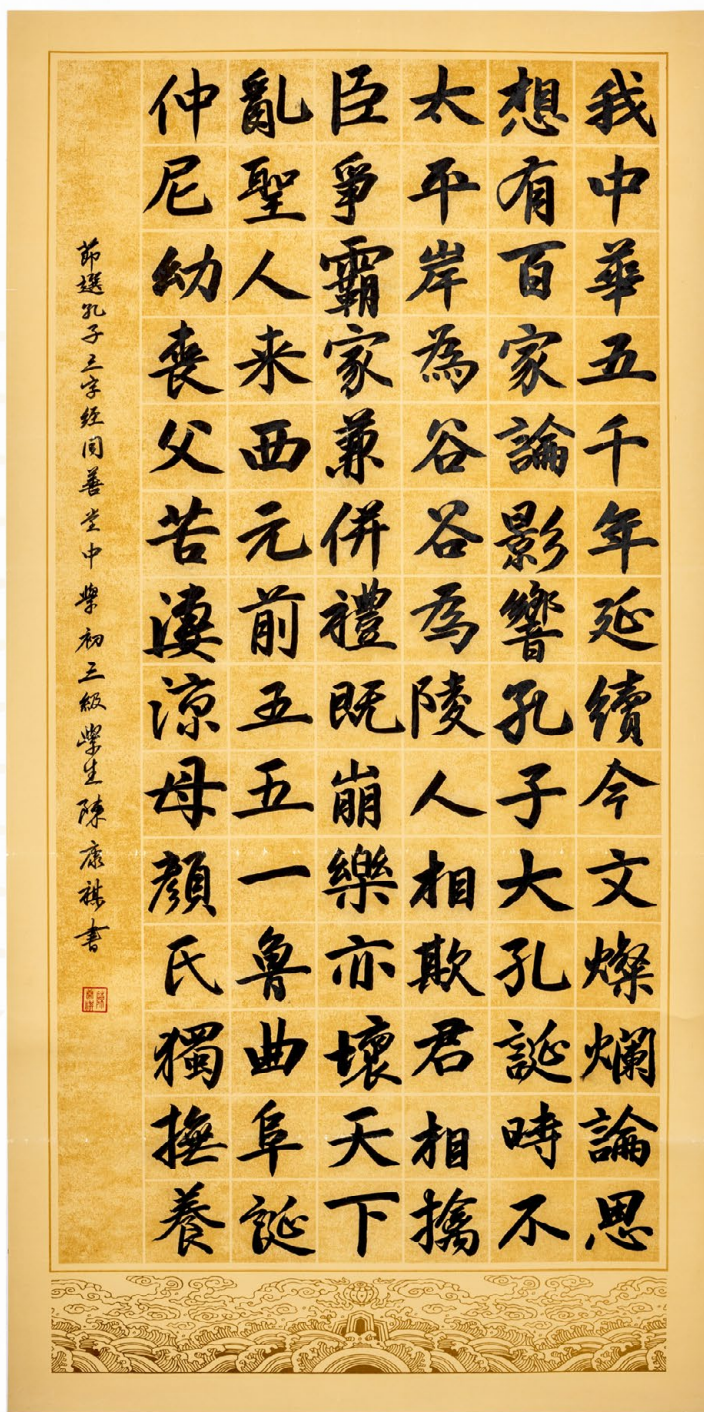 我中華五千年延續今文燦爛論思
想有百家論影響孔子大孔誕時不
太平岸為谷谷為陵人相欺君相擒
臣爭霸家兼併禮既崩樂亦壞天下
亂聖人来西元前五五一魯曲阜誕
仲尼幼喪父苦淒涼母顏氏獨撫養
節選孔子三字經同善堂中學初三級學生陳康祺書